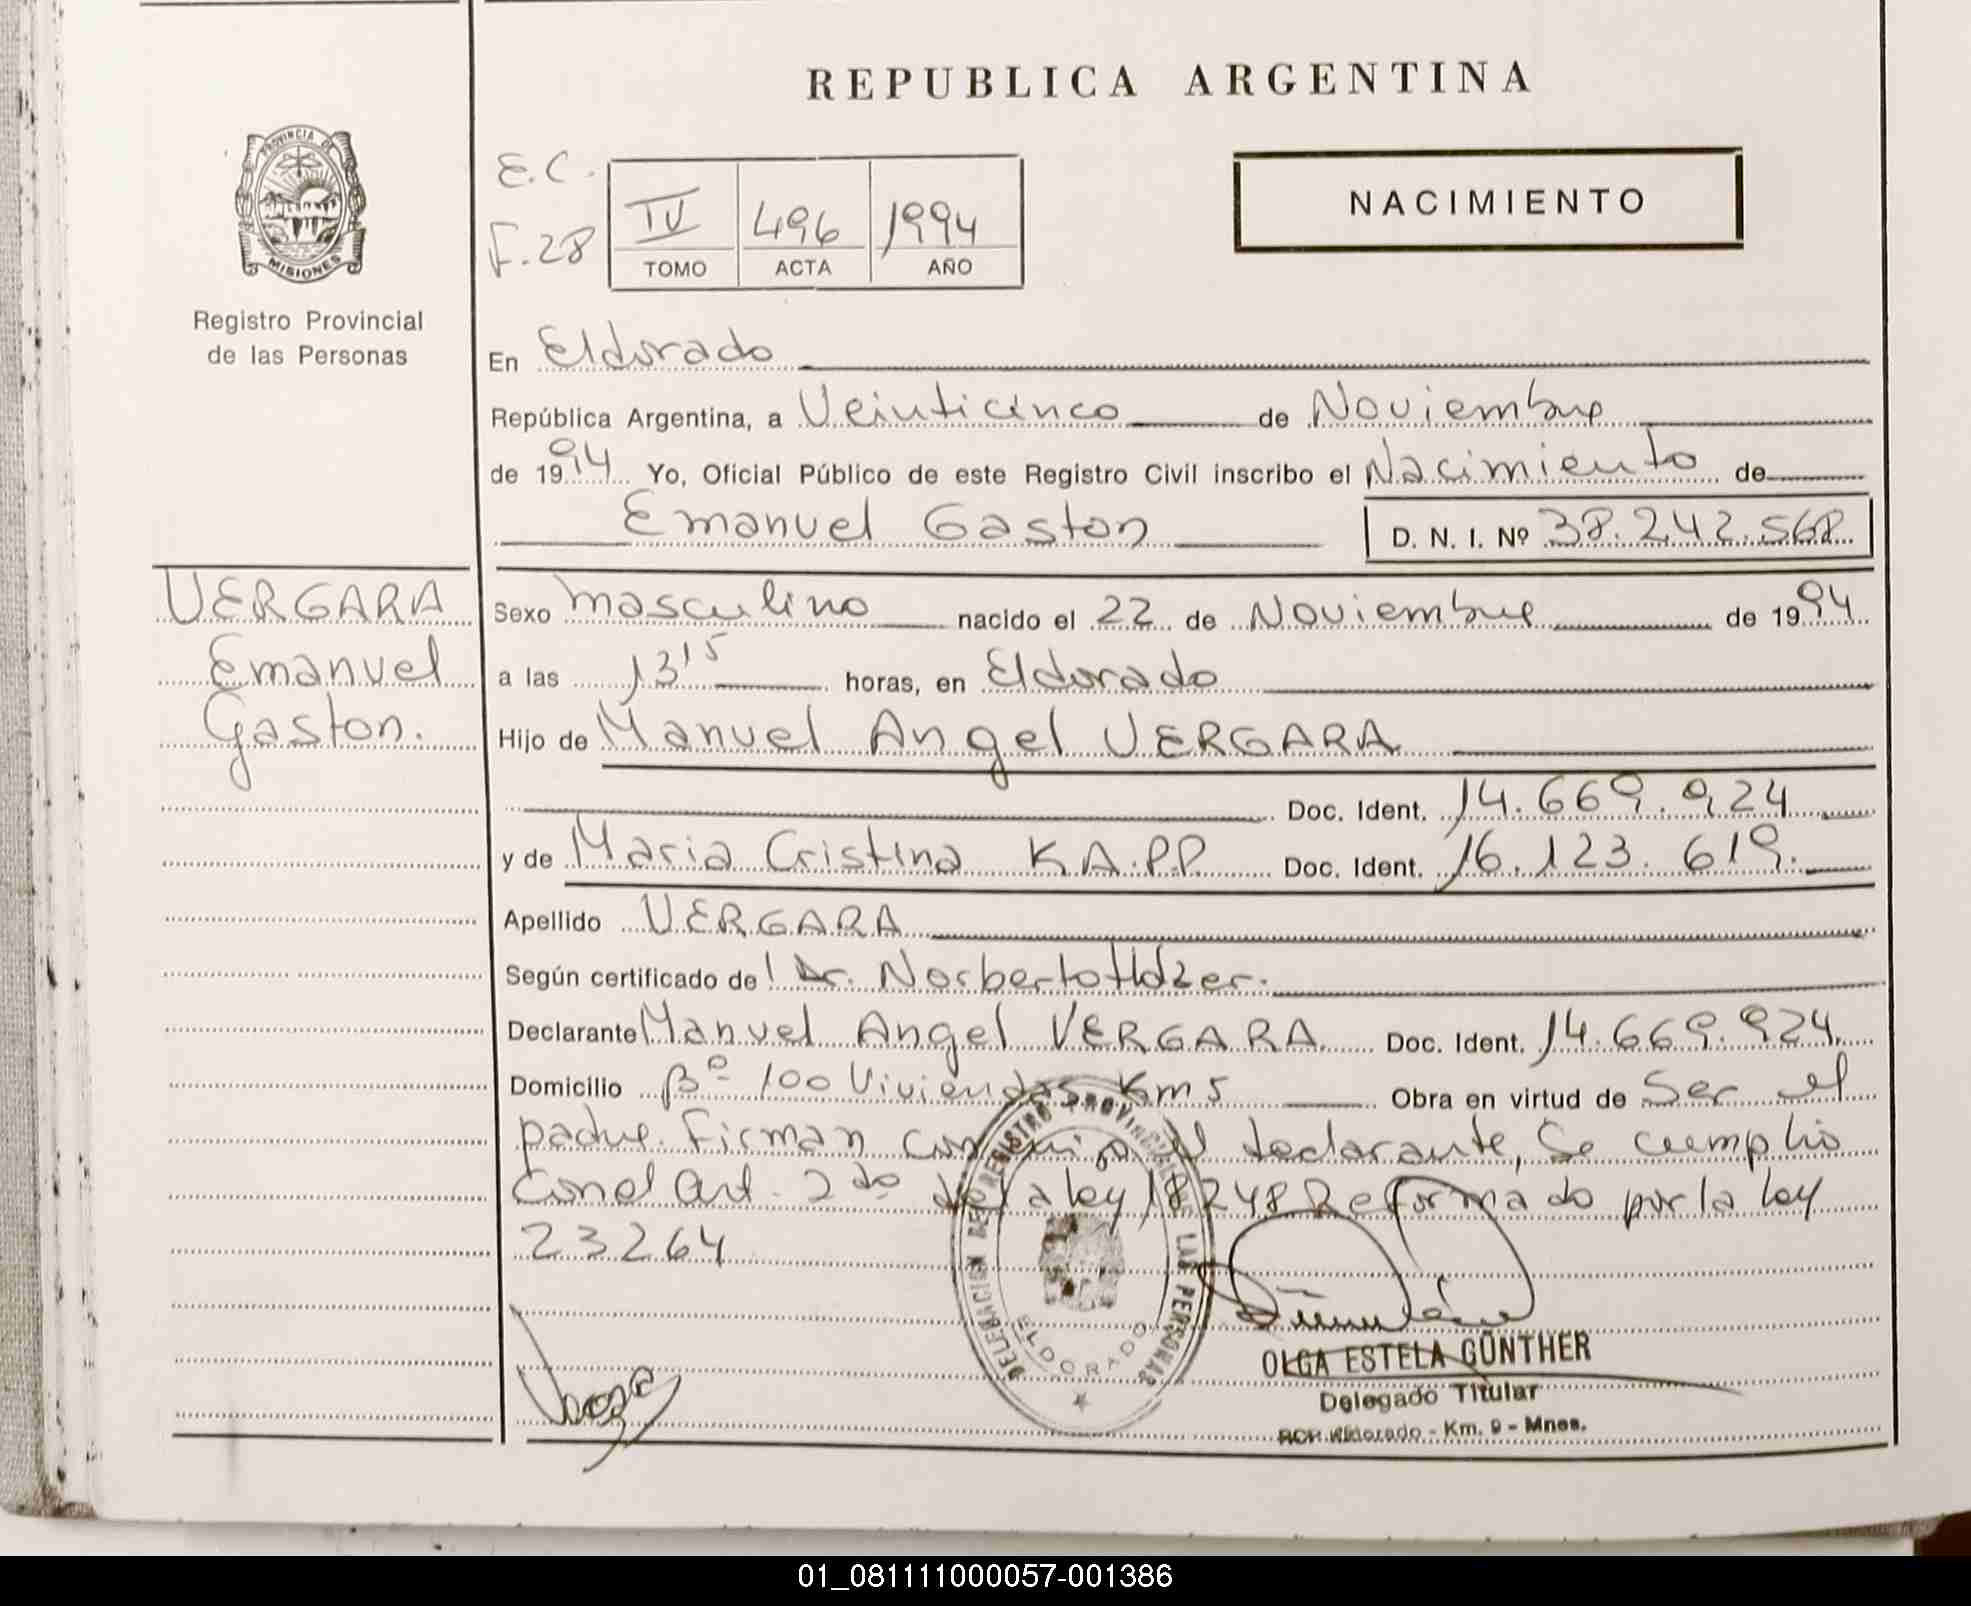 REPUBLICA ARGENTINA
PROVINCIA DE
MISIONES
Registro Provincial
de las Personas
E.C.
F.28
IV 496 1994
TOMO ACTA AÑO
NACIMIENTO
En Eldorado
República Argentina, a Veinticinco de Noviembre
de 1994 Yo, Oficial Público de este Registro Civil inscribo el Nacimiento de
Emanuel Gaston D. N. I. Nº 38.242.568
VERGARA
Emanuel
Gaston.
Sexo masculino nacido el 22 de Noviembre de 1994
a las 13¹⁵ horas, en Eldorado
Hijo de Manuel Angel VERGARA
Doc. Ident. 14.669.924
y de Maria Cristina KAPP Doc. Ident. 16.123.619.
Apellido VERGARA
Según certificado de Dr. Norberto Holzer.
Declarante Manuel Angel VERGARA Doc. Ident. 14.669.924
Domicilio Bº 100 Viviendas Km 5 Obra en virtud de Ser el
padre. Firman conmigo el declarante, Se cumplio
Con el Art. 2do de la ley 18248 Reformado por la ley
23264
DELEGACION DEL REGISTRO PROVINCIAL DE LAS PERSONAS
ELDORADO
OLGA ESTELA GÜNTHER
Delegado Titular
RCP. Eldorado - Km. 9 - Mnes.
01_081111000057-001386